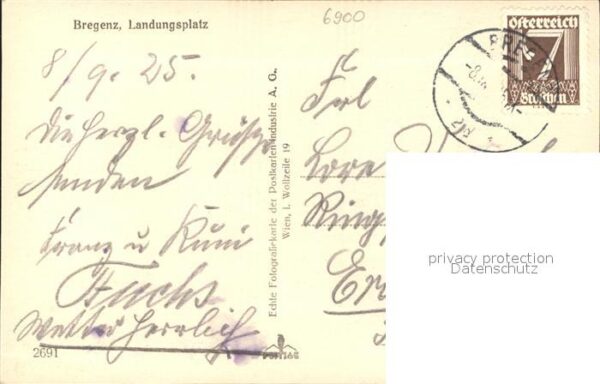 Bregenz, Landungsplatz
6900
8/9. 25.
Die herzl. Grüsse
senden
Franz u Kuni
Fuchs
Wetter herrlich
2691
Echte Fotografiekarte der Postkarten-Industrie A. G.
Wien, I. Wollzeile 19
Österreich
7
Groschen
Frl
Lore
Ring
Er
privacy protection
Datenschutz